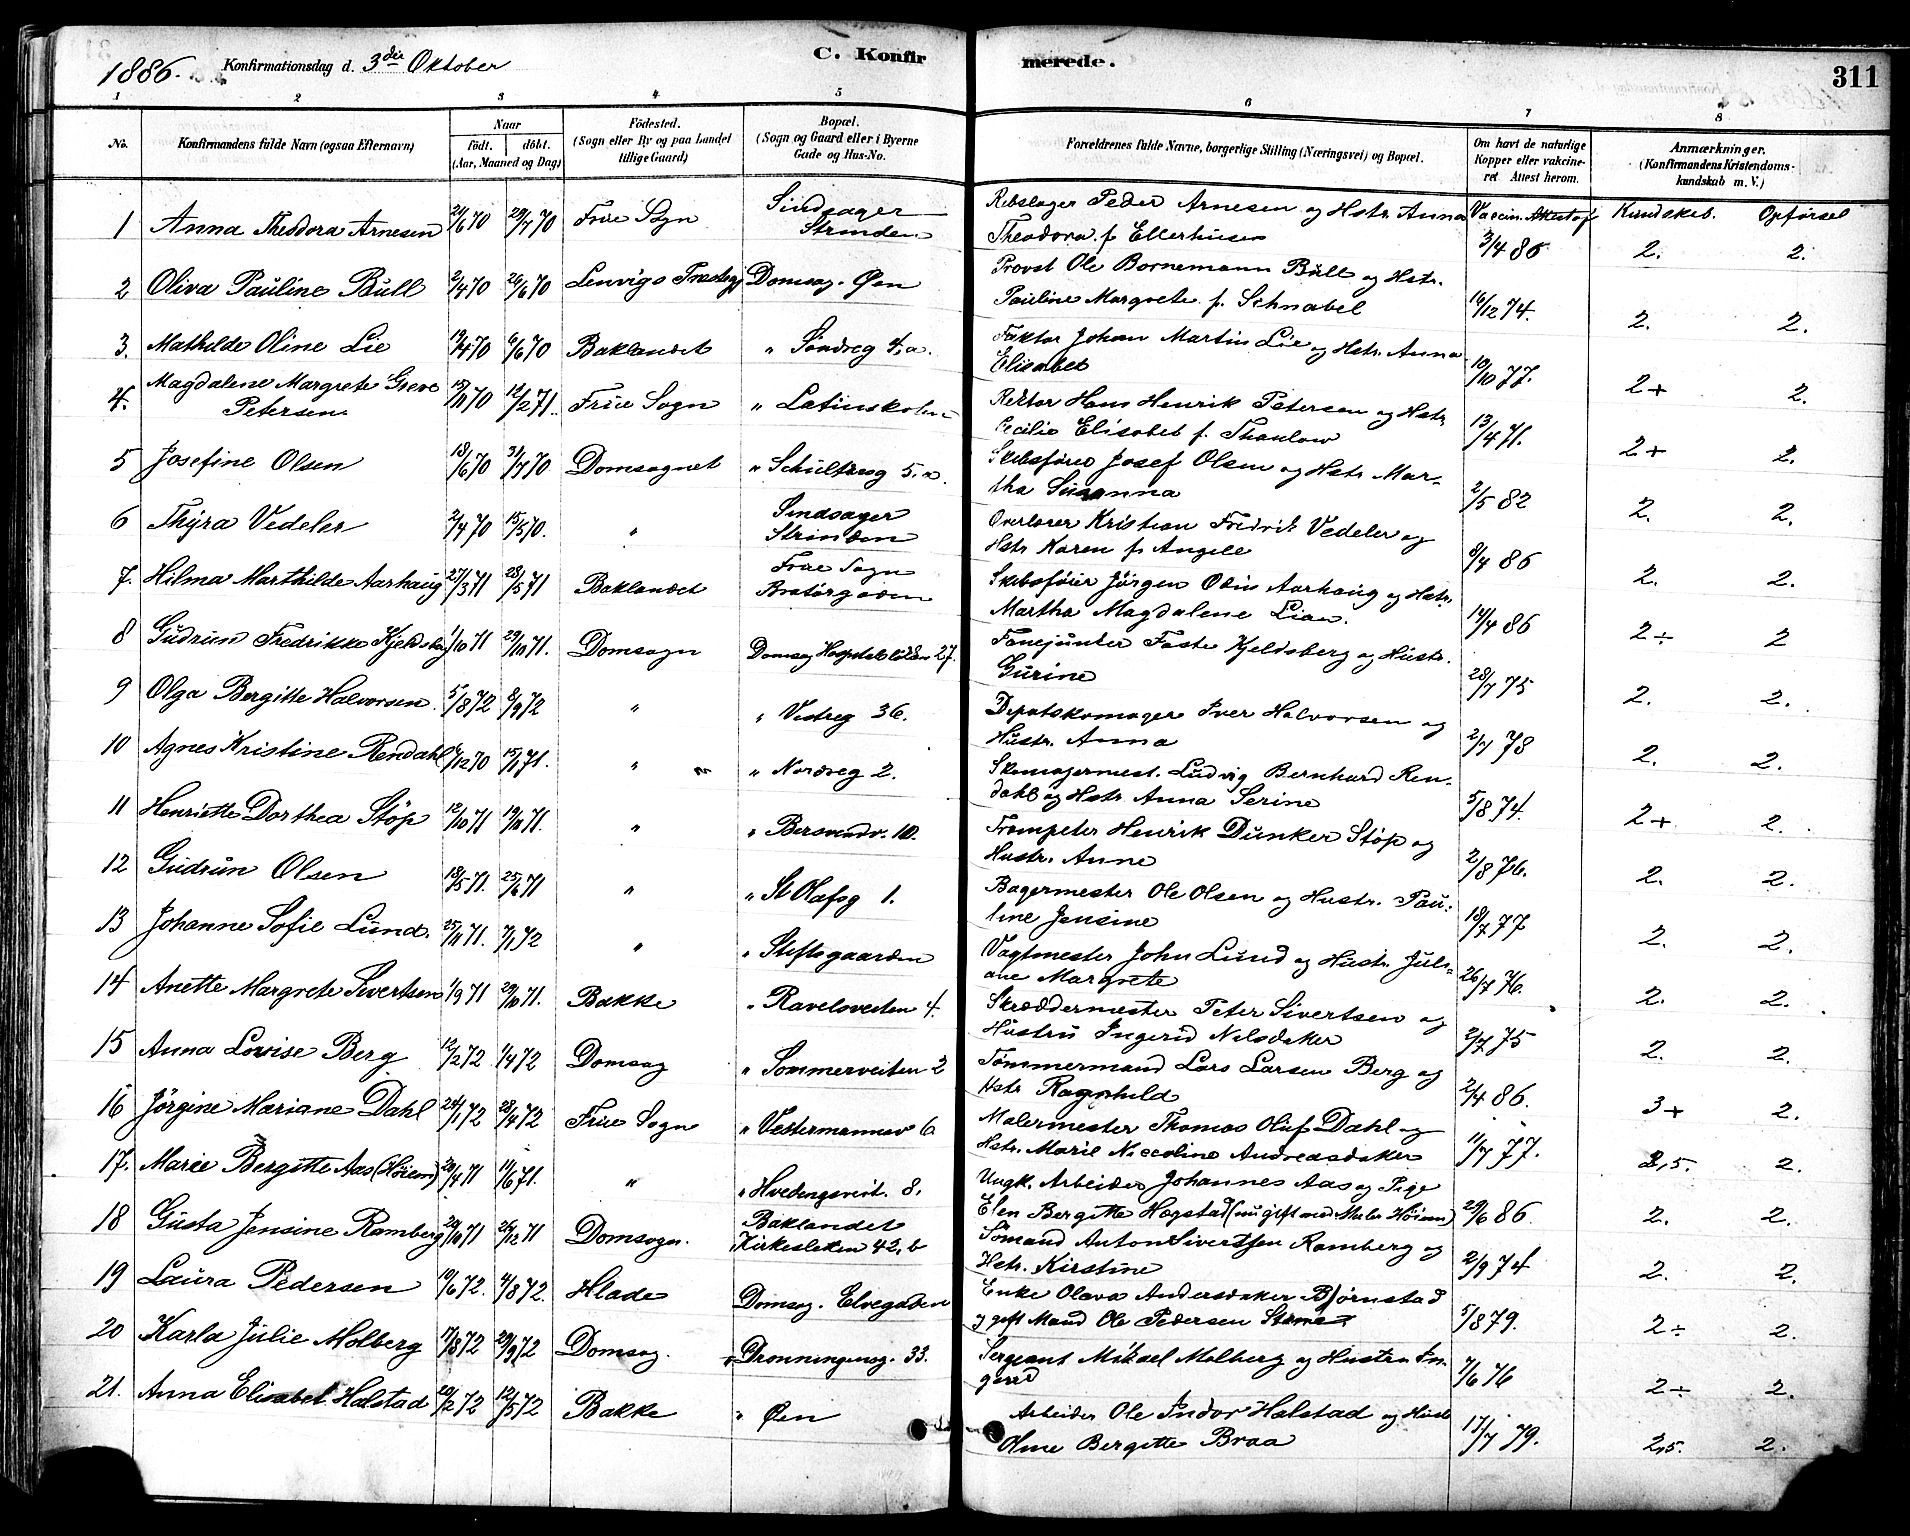 1886. Konfirmationsdag d. 3die Oktober C. Konfirmerede. 311
1 2 3 4 5 6 7 8
No. Konfirmandens fulde Navn (ogsaa Efternavn) Naar født. døbt. (Aar, Maaned og Dag) Fødested. (Sogn eller By og paa Landet tillige Gaard) Bopæl. (Sogn og Gaard eller i Byerne Gade og Hus-No. Forældrenes fulde Navne, borgerlige Stilling (Næringsvei) og Bopæl. Om havt de naturlige Kopper eller vakcineret Attest herom. Anmærkninger. (Konfirmandens Kristendomskundskab m. V.)
Vaccin. Attest af Kundskab. Opførsel
1 Anna Theodora Arnesen 21/6 70 29/7 70 Frue Sogn Sindsager Strinden Rebslager Peder Arnesen og Hstr. Anna Theodora f. Ellerhusen 3/4 86 2. 2.
2 Oliva Pauline Bull 2/4 70 26/6 70 Lenvigs Præstegj Domsog. Øen Provst Ole Bornemann Bull og Hstr. Pauline Margrete f. Schnabel 16/12 74. 2. 2.
3. Mathilde Oline Lie 19/4 70 6/6 70 Baklandet " Søndreg 4,a. Faktor Johan Martin Lie og Hstr. Anna Elisabet 10/10 77. 2+ 2.
4. Magdalene Margrete Greve Petersen 15/11 70 12/2 71. Frue Sogn " Latinskolen Rektor Hans Henrik Petersen og Hstr. Cecilie Elisabet f. Thaulow 13/4 71. 2+ 2.
5 Josefine Olsen 18/6 70 31/7 70. Domsognet " Schultzeg 5.a. Skibsfører Josef Olsen og Hstr. Martha Susanna 2/5 82 2. 2.
6 Thyra Vedeler 2/4 70 15/5 70. " Sindsager Strinden Overlærer Kristian Fredrik Vedeler og Hstr. Karen f. Angell 8/4 86 2. 2.
7. Hilma Marthilde Aarhaug 27/3 71 28/5 71 Baklandet Frue Sogn Bratørgaden Skibsfører Jørgen Odin Aarhaug og Hstr. Martha Magdalene Lian. 14/4 86 2÷ 2
8 Gudrun Fredrikke Kjeldsberg 1/10 71 29/10 71. Domsogn Domsog Hospitalsløkken 27. Fanejunker Faste Kjeldsberg og Hustr. Gurine 28/7 75 2. 2.
9 Olga Bergitte Halvorsen 5/8 72 8/9 72 " " Vestreg 36. Depotskomager Iver Halvorsen og Hustr. Anna 2/7 78 2. 2.
10 Agnes Kristine Rendahl /12 70 15/1 71. " " Nordreg 2. Skomagermest. Ludvig Bernhard Rendahl og Hstr. Anna Serine 5/8 74. 2+ 2.
11 Henriette Dorthea Støp 12/10 71 19/11 71. " " Bersvendv. 10. Trompeter Henrik Dunker Støp og Hustr. Anne 2/8 76. 2. 2.
12 Gudrun Olsen 18/5 71. 25/6 71 " " St Olafsg 1. Bagermester Ole Olsen og Hustr. Pauline Jensine 18/7 77 2. 2.
13 Johanne Sofie Lund. 25/11 71. 7/1 72 " " Stiftsgaarden Vagtmester John Lund og Hustr. Juliane Margrete 26/7 76. 2. 2.
14 Anette Margrete Sivertsen 1/9 71 29/10 71. Bakke " Ravelsveiten 4. Skræddermester Peter Sivertsen og Hustru Ingerid Nilsdaker 2/7 75 2. 2.
15 Anna Lovise Berg 12/2 72 1/4 72 Domsog " Sommerveiten 2 Tømmermand Lars Larsen Berg og Hstr Ragnhild 2/4 86. 3+ 2.
16 Jørgine Mariane Dahl 24/1 72 28/4 72 Frue Sogn " Vestermannsv 6 Malermester Thomas Oluf Dahl og Hstr. Marie Niccoline Andreasdaker 11/7 77. 2,5. 2.
17. Marie Bergitte Aas (Høiem) 20/4 71 11/6 71. " " Hvedingsveit. 8. Ungk. Arbeider Johannes Aas og Pige Elen Bergitte Hogstad (nu gift med Maler Høiem) 29/6 86. 2. 2.
18 Gusta Jensine Ramberg 29/10 71 26/12 71 Domsogn. Baklandet Kirkesletten 42,b Sømand Anton Sivertsen Ramberg og Hstr. Kirstine 2/9 74 2. 2.
19 Laura Pedersen 19/6 72. 4/8 72. Hlade Domsog. Elvegaden Enke Olava Andersdaker Bjørnstad og gift Mand Ole Pedersen 5/8 79. 2÷ 2.
20 Karla Julie Molberg 17/8 72 29/9 72 Domsog. " Dronningensg. 33. Sergeant Mikael Molberg og Hustru Ingerid 7/6 76 2÷ 2.
21. Anna Elisabet Halstad 20/2 72 12/5 72 Bakke " Øen Arbeider Ole Indor Halstad og Hust Oline Bergitte Braa 17/7 79. 2,5. 2.